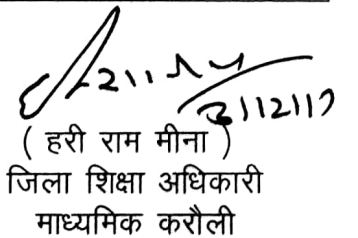 ( हरी राम मीना )
जिला शिक्षा अधिकारी
माध्यमिक करौली